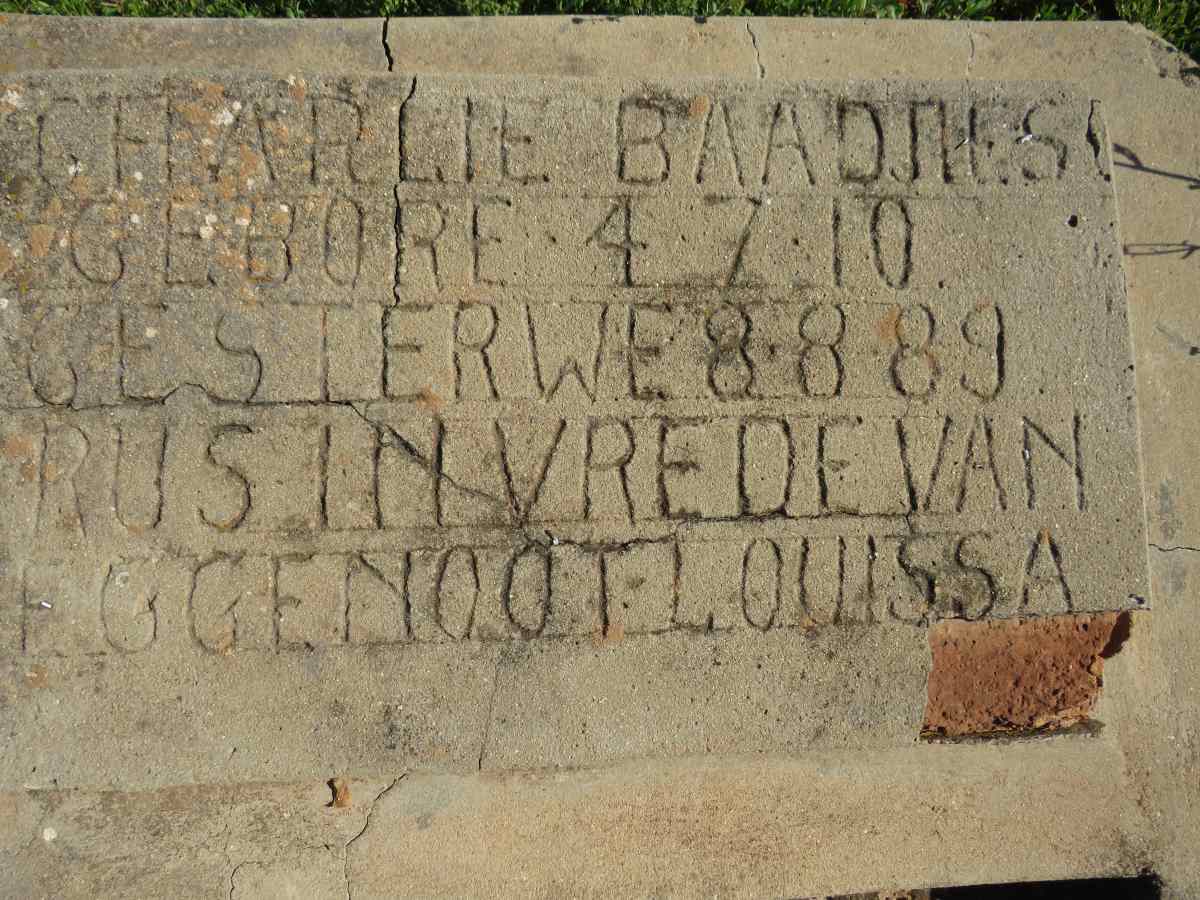 CHARLIE BAADJIES
GEBORE 4 7 10
GESTERWE 8 8 89
RUS IN VREDE VAN
EGGENOOT LOUISSA